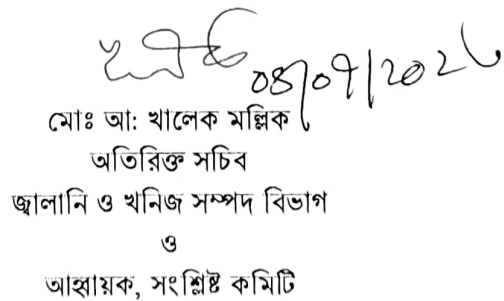 মোঃ আ: খালেক মল্লিক
অতিরিক্ত সচিব
জ্বালানি ও খনিজ সম্পদ বিভাগ
ও
আহ্বায়ক, সংশ্লিষ্ট কমিটি